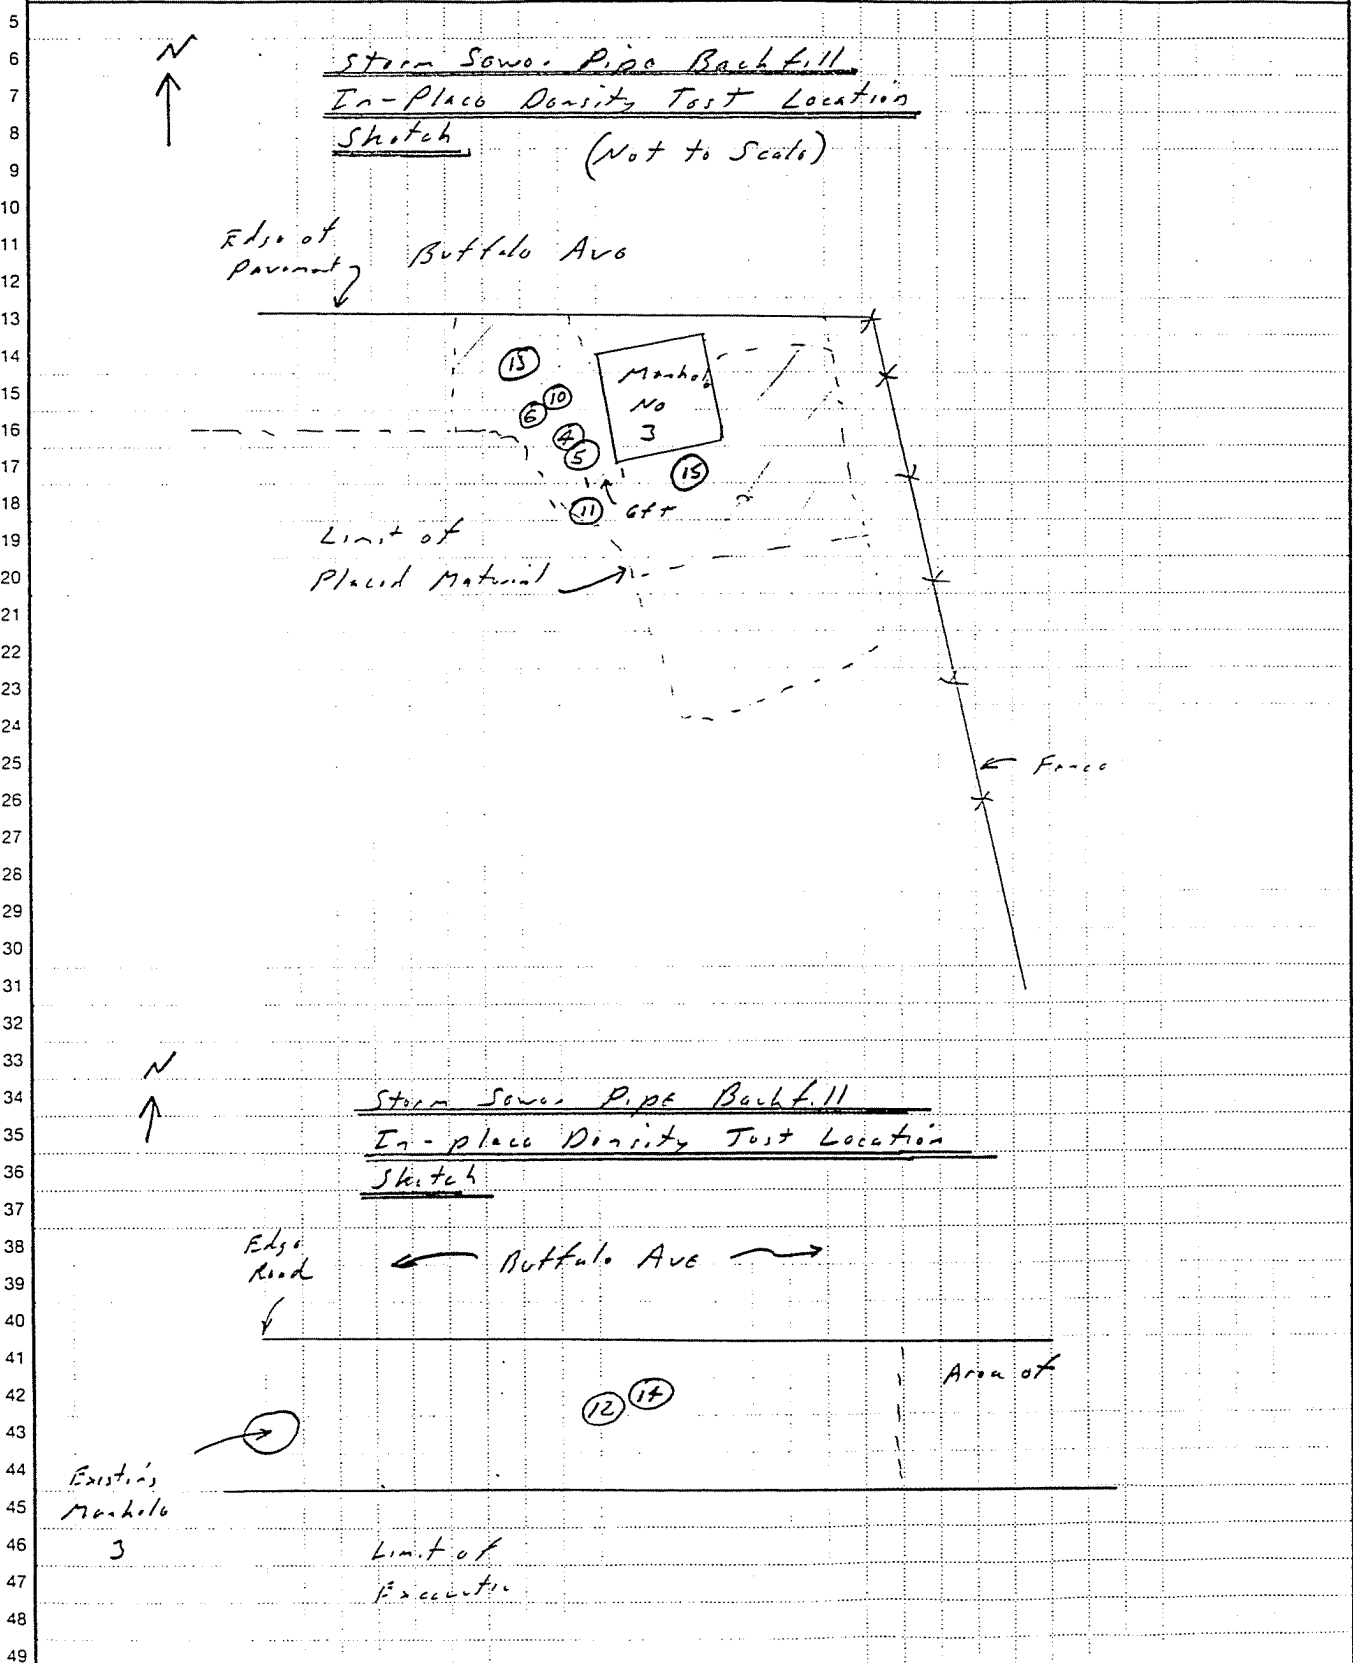 5
6
7
8
9
10
11
12
13
14
15
16
17
18
19
20
21
22
23
24
25
26
27
28
29
30
31
32
33
34
35
36
37
38
39
40
41
42
43
44
45
46
47
48
49
N
Storm Sewer Pipe Backfill
In-Place Density Test Location
Sketch (Not to Scale)
Edge of
Pavement
Buffalo Ave
15
10
6
4
5
11
15
Manhole
No
3
6ft
Limit of
Placed Material
Fence
N
Storm Sewer Pipe Backfill
In-place Density Test Location
Sketch
Edge
Road
Buffalo Ave
Area of
12
14
Existing
Manhole
3
Limit of